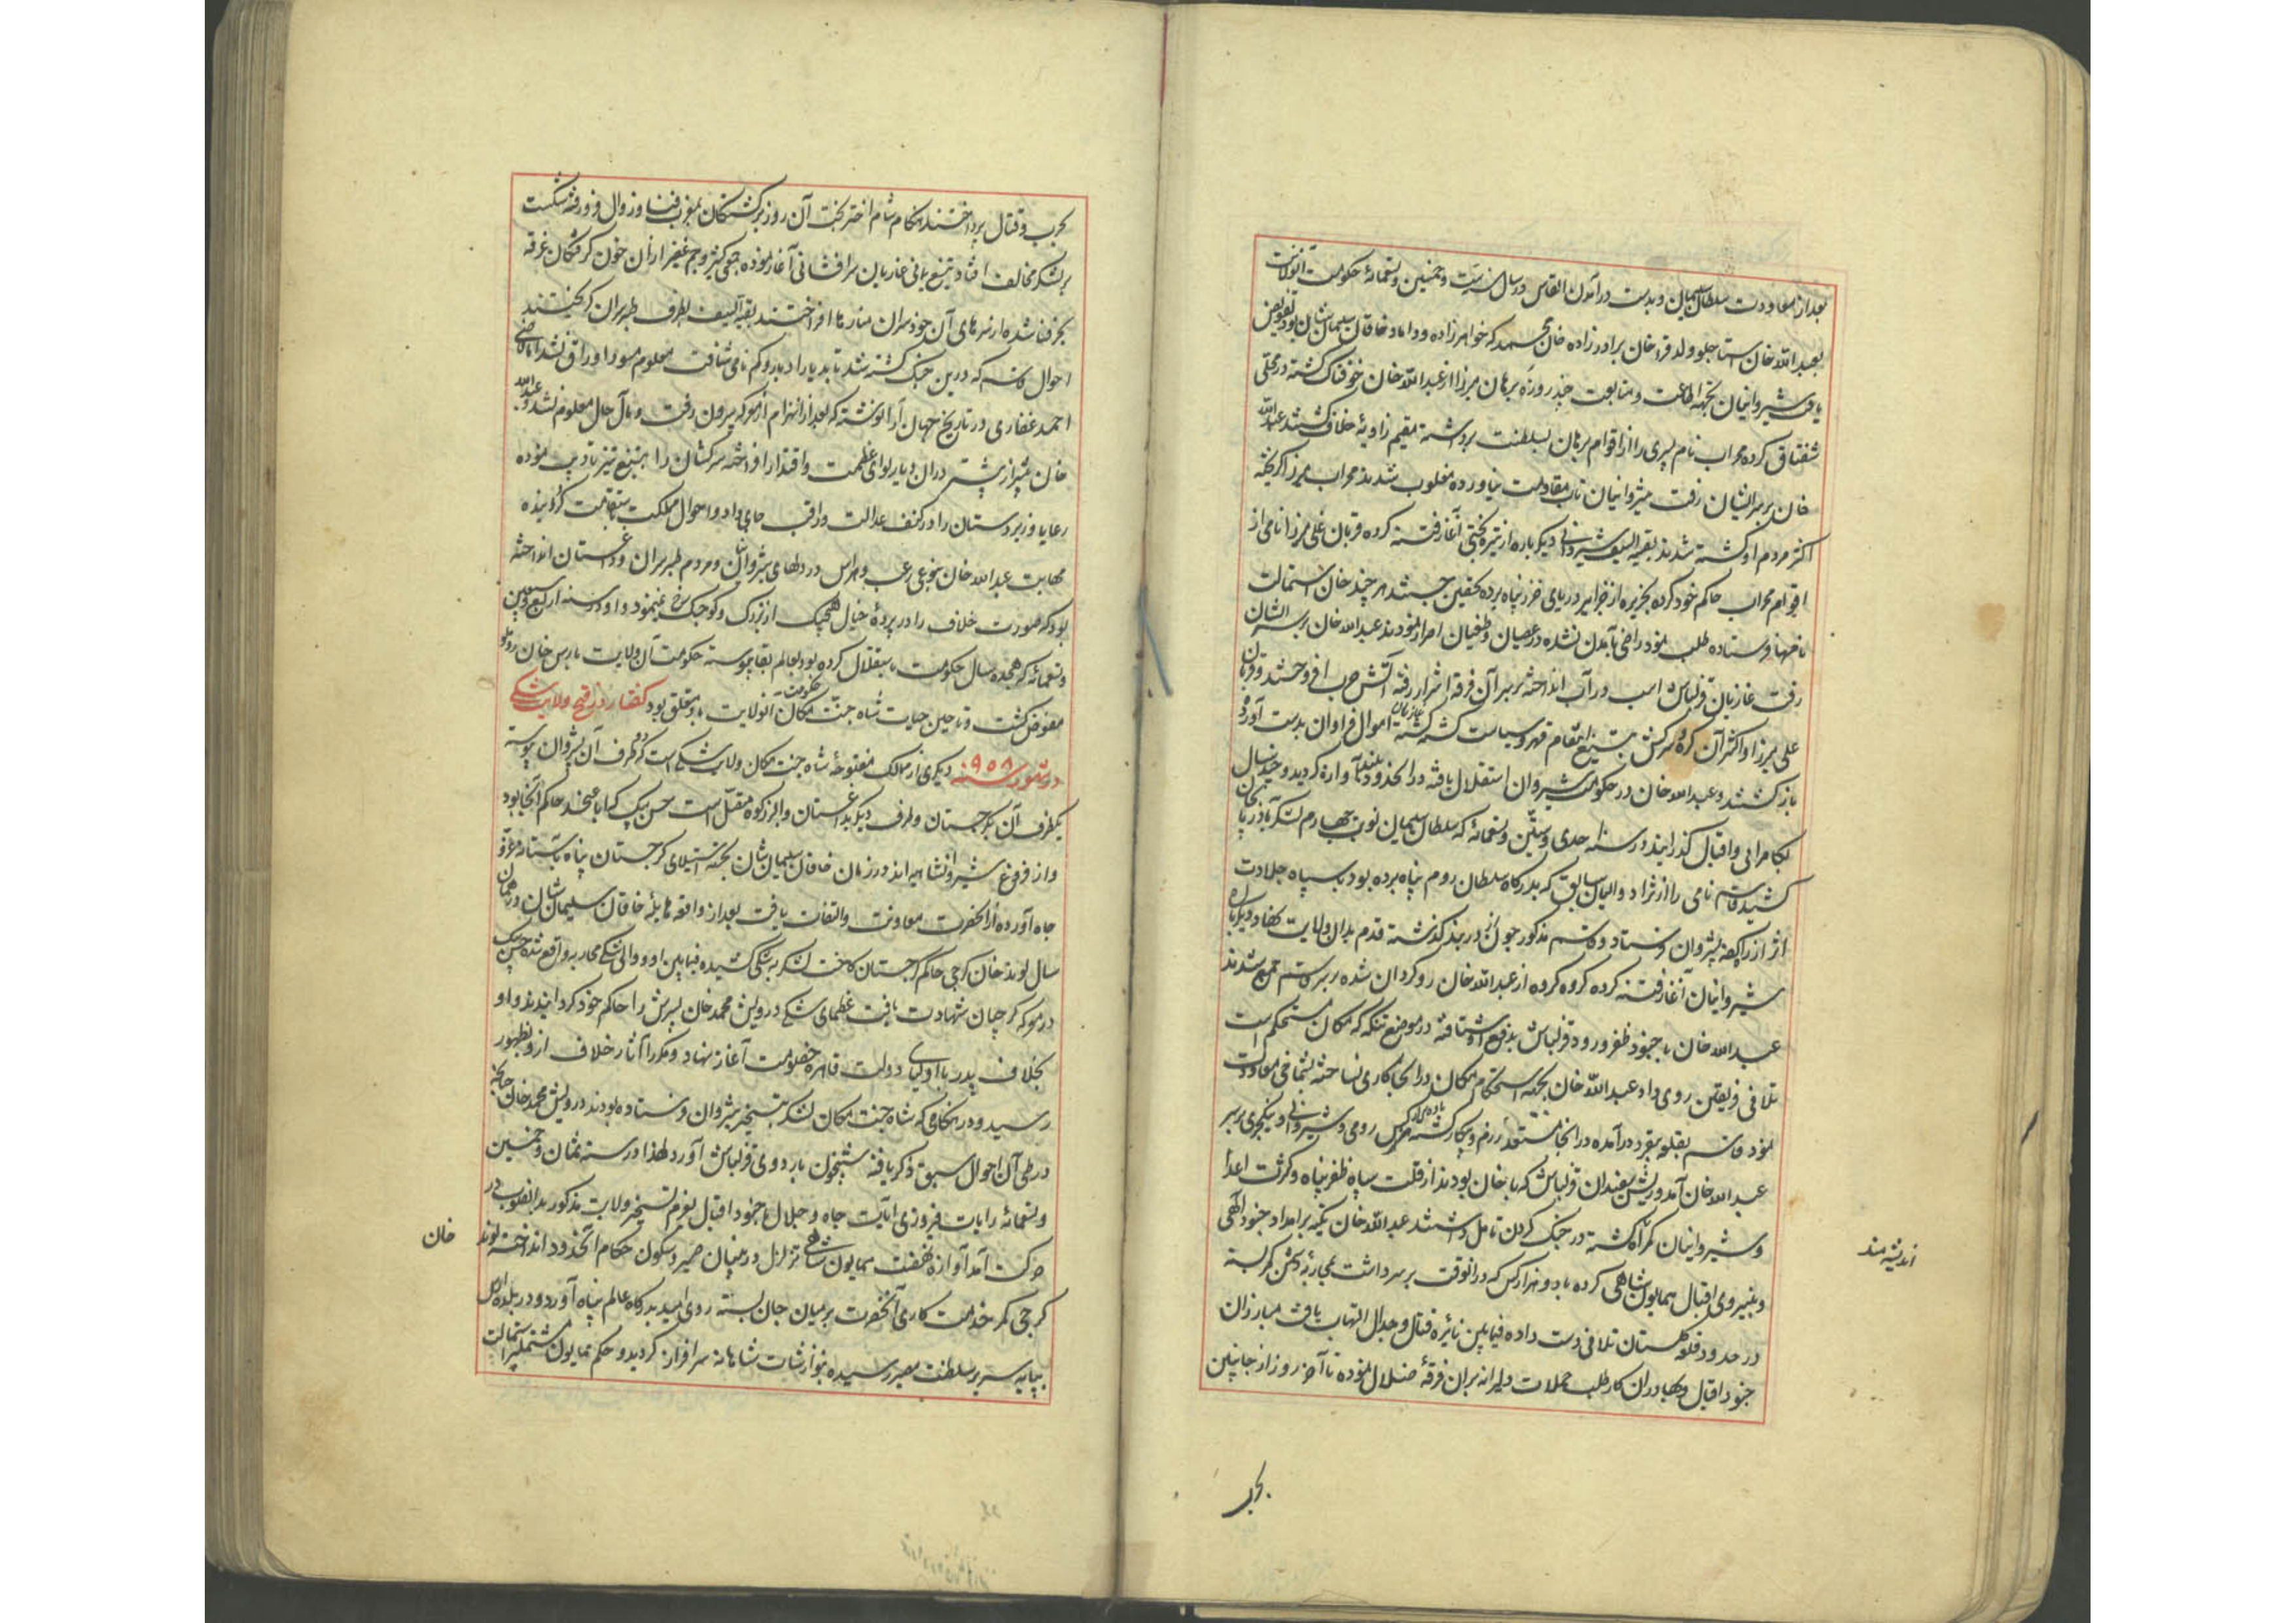 بعد از معاودت سلطان سلیمان و بدست درآمدن القاس در سال سنه ست و خمسین و تسعمائه حکومت آنولایت
بعبدالله خان استاجلو ولد قراخان برادرزاده خان محمد که خواهرزاده و داماد خاقان سلیمان شان بود تفویض
یافت شیروانیان بجهة اطاعت و متابعت چند روزه برهان میرزا از عبدالله خان خوفناک گشته در محلی
شقناق کرده محراب نام پسری را از اقوام برهان بسلطنت برداشته مقیم زاویه خلاف گشتند عبدالله
خان بر سر ایشان رفت شیروانیان تاب مقاومت نیاورده مغلوب شدند محراب میرزا گریخته
اکثر مردم او کشته شدند بقیة السیف شیروانی دیگر باره از تیره بختی آغاز فتنه کرده قربان علی میرزا نامی از
اقوام محراب حاکم خود کرده بجزیره از جزایر دریای خزر پناه برده تحصن جستند هر چند خان استمالت
نامها فرستاده طلب نمود راضی بآمدن نشده در عصیان و طغیان اصرار نمودند عبدالله خان بر سر ایشان
رفت غازیان قزلباش اسب در آب انداخته بر سر آن فرقه اشرار رفته آتش حرب افروختند و قربان
علی میرزا و اکثر آن گروه سرکش بتیغ انتقام قهر و سیاست کشته گشته غازیان اموال فراوان بدست آورده
باز گشتند و عبدالله خان در حکومت شیروان استقلال یافته در آنحدود بلند آوازه گردید و چند سال
بکامرانی و اقبال گذرانید در سنه احدی و ستین و تسعمائه که سلطان سلیمان نوبت چهارم لشکر بآذربایجان
کشید قاسم نامی را از نژاد والیان سابق که بدرگاه سلطان روم پناه برده بود با سپاه جلادت
اثر از راه کفه بشیروان فرستاد و قاسم مذکور چون از دربند گذشته قدم بدان ولایت نهاد دیگر باره
شیروانیان آغاز فتنه کرده گروه گروه از عبدالله خان رو گردان شده بر سر قاسم جمع شدند
عبدالله خان با جنود ظفر ورود قزلباش بدفع او شتافته در موضع تنکه که مکان مستحکم است
تلاقی فریقین روی داد عبدالله خان بجهة استحکام مکان در آنجا کاری نساخته بشماخی معاودت
نمود قاسم بقلعه بیقرد درآمده در آنجا مستعد رزم و پیکار گشته رومی و شیروانی و ینگچری بر سر
عبدالله خان آمد و ریش سفیدان قزلباش که با خان بودند از قلت سپاه ظفر پناه و کثرت اعدا
و شیروانیان گمراه گشته در جنگ کردن تامل داشتند عبدالله خان تکیه بر امداد جنود الهی
اندیشه‌مند
و نیروی اقبال همایون شاهی کرده با دو هزار کس که در آنوقت بر سر داشت بمحاربه دشمن کمر بسته
در حدود قلعه گلستان تلاقی دست داده فیمابین نائره قتال و جدال التهاب یافت مبارزان
جنود اقبال و بهادران کار طلب حملات دلیرانه بر آن فرقه ضلال نموده تا آخر روز از جانبین
بحرب
بحرب و قتال پرداختند هنگام شام اختر بخت آن روز برگشتگان بمغرب فنا و زوال فرو رفته شکست
بر لشکر مخالف افتاد و تیغ یمانی غازیان سرافشانی آغاز نموده جمعی کثیر و جم غفیر از آن خون گرفتگان غرقه
بحر فنا شده از سرهای آن خودسران منارها افراختند بقیة السیف بطرف طبرسران گریختند
احوال قاسم که درین جنگ کشته شد تا بدیار ادبار و گم نامی شتافت معلوم مسود اوراق نشد اما قاضی
احمد غفاری در تاریخ جهان آرا نوشته که بعد از انهزام از معرکه بیرون رفت و مآل حال معلوم نشد و عبدالله
خان بیشتر از پیشتر در آن دیار لوای عظمت و اقتدار افراخته سرکشان را بتیغ تیز تادیب نموده
رعایا و زیردستان را در کنف عدالت و رافت جای داد و احوال مملکت استقامت گردانیده
مهابت عبدالله خان بنوعی رعب و هراس در دلهای شیروانیان و مردم طبرسران و داغستان انداخته
بود که صورت خلاف را در پرده خیال هیچیک از بزرگ و کوچک رخ نمینمود و او در سنه اربع و سبعین
و تسعمائه که هجده سال حکومت باستقلال کرده بود بعالم بقا پیوسته حکومت آن ولایت بارس خان روملو
مفوض گشت و تا حین حیات شاه جنت مکان حکومت آنولایت باو متعلق بود گفتار در فتح ولایت شکی
در شهور سنه ۹۵۸ دیگری از ممالک مفتوحه شاه جنت مکان ولایت شکی است که طرف آن بشیروان پیوسته
یکطرف آن بگرجستان و طرف دیگر بداغستان و البرز کوه متصل است حسن بیک که ابا عن جد حاکم آنجا بود
و از فروغ شیروانشاهیه اند در زمان خاقان سلیمان شان بجهة استیلای گرجستان پناه بآستانه عز و
جاه آورده از آنحضرت معاونت و التفات یافت بعد از واقعه هایله خاقان سلیمان شان در همان
سال لوند خان گرجی حاکم گرجستان کاخت لشکر به شکی کشیده فیمابین او و والی شکی محاربه واقع شده حسن بیک
در معرکه گرجیان شهادت یافت عظمای شکی درویش محمد خان پسرش را حاکم خود گردانیدند و او
بخلاف پدر با اولیای دولت قاهره خصومت آغاز نهاد و مکررا آثار خلاف ازو بظهور
رسید و در هنگامی که شاه جنت مکان لشکر بتسخیر شیروان فرستاده بودند درویش محمد خان چنانچه
در طی آن احوال سبق ذکر یافته شبیخون باردوی قزلباش آورد لهذا در سنه ثمان و خمسین
و تسعمائه رایات فیروزی آیات جاه و جلال با جنود اقبال بعزم تسخیر ولایت مذکور بدانصوب در
حرکت آمد آوازه نهضت همایون شاهی تزلزل در بنیان صبر و سکون حکام آنحدود انداخته لوند
خان
گرجی کمر خدمت کاری آنحضرت بر میان جان بسته روی امید بدرگاه عالم پناه آورد و در بلده ارش
بپایه سریر سلطنت مصیر رسیده بنوازشات شاهانه سرافراز گردید و حکم همایون مشتمل بر استمالت